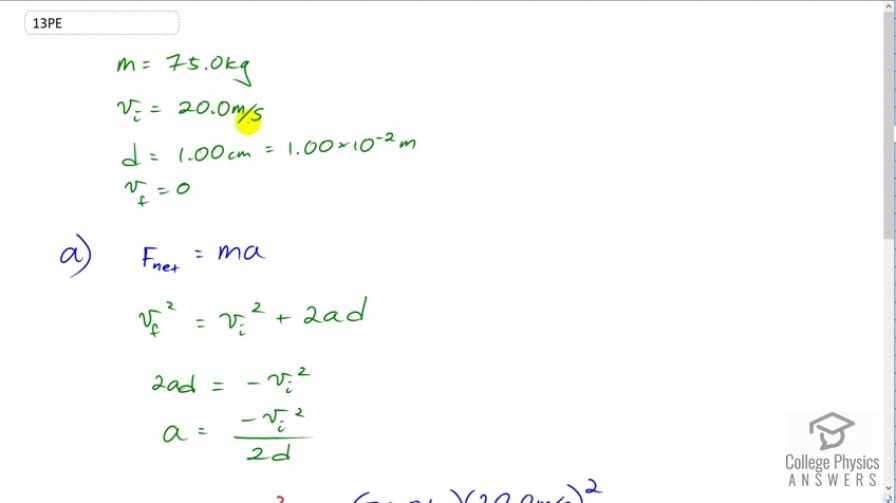 13PE
m = 75.0kg
v_i = 20.0m/s
d = 1.00cm = 1.00×10⁻² m
v_f = 0
a) F_net = ma
v_f² = v_i² + 2ad
2ad = -v_i²
a = -v_i² / 2d
)(20.0m/s)²
College Physics
ANSWERS